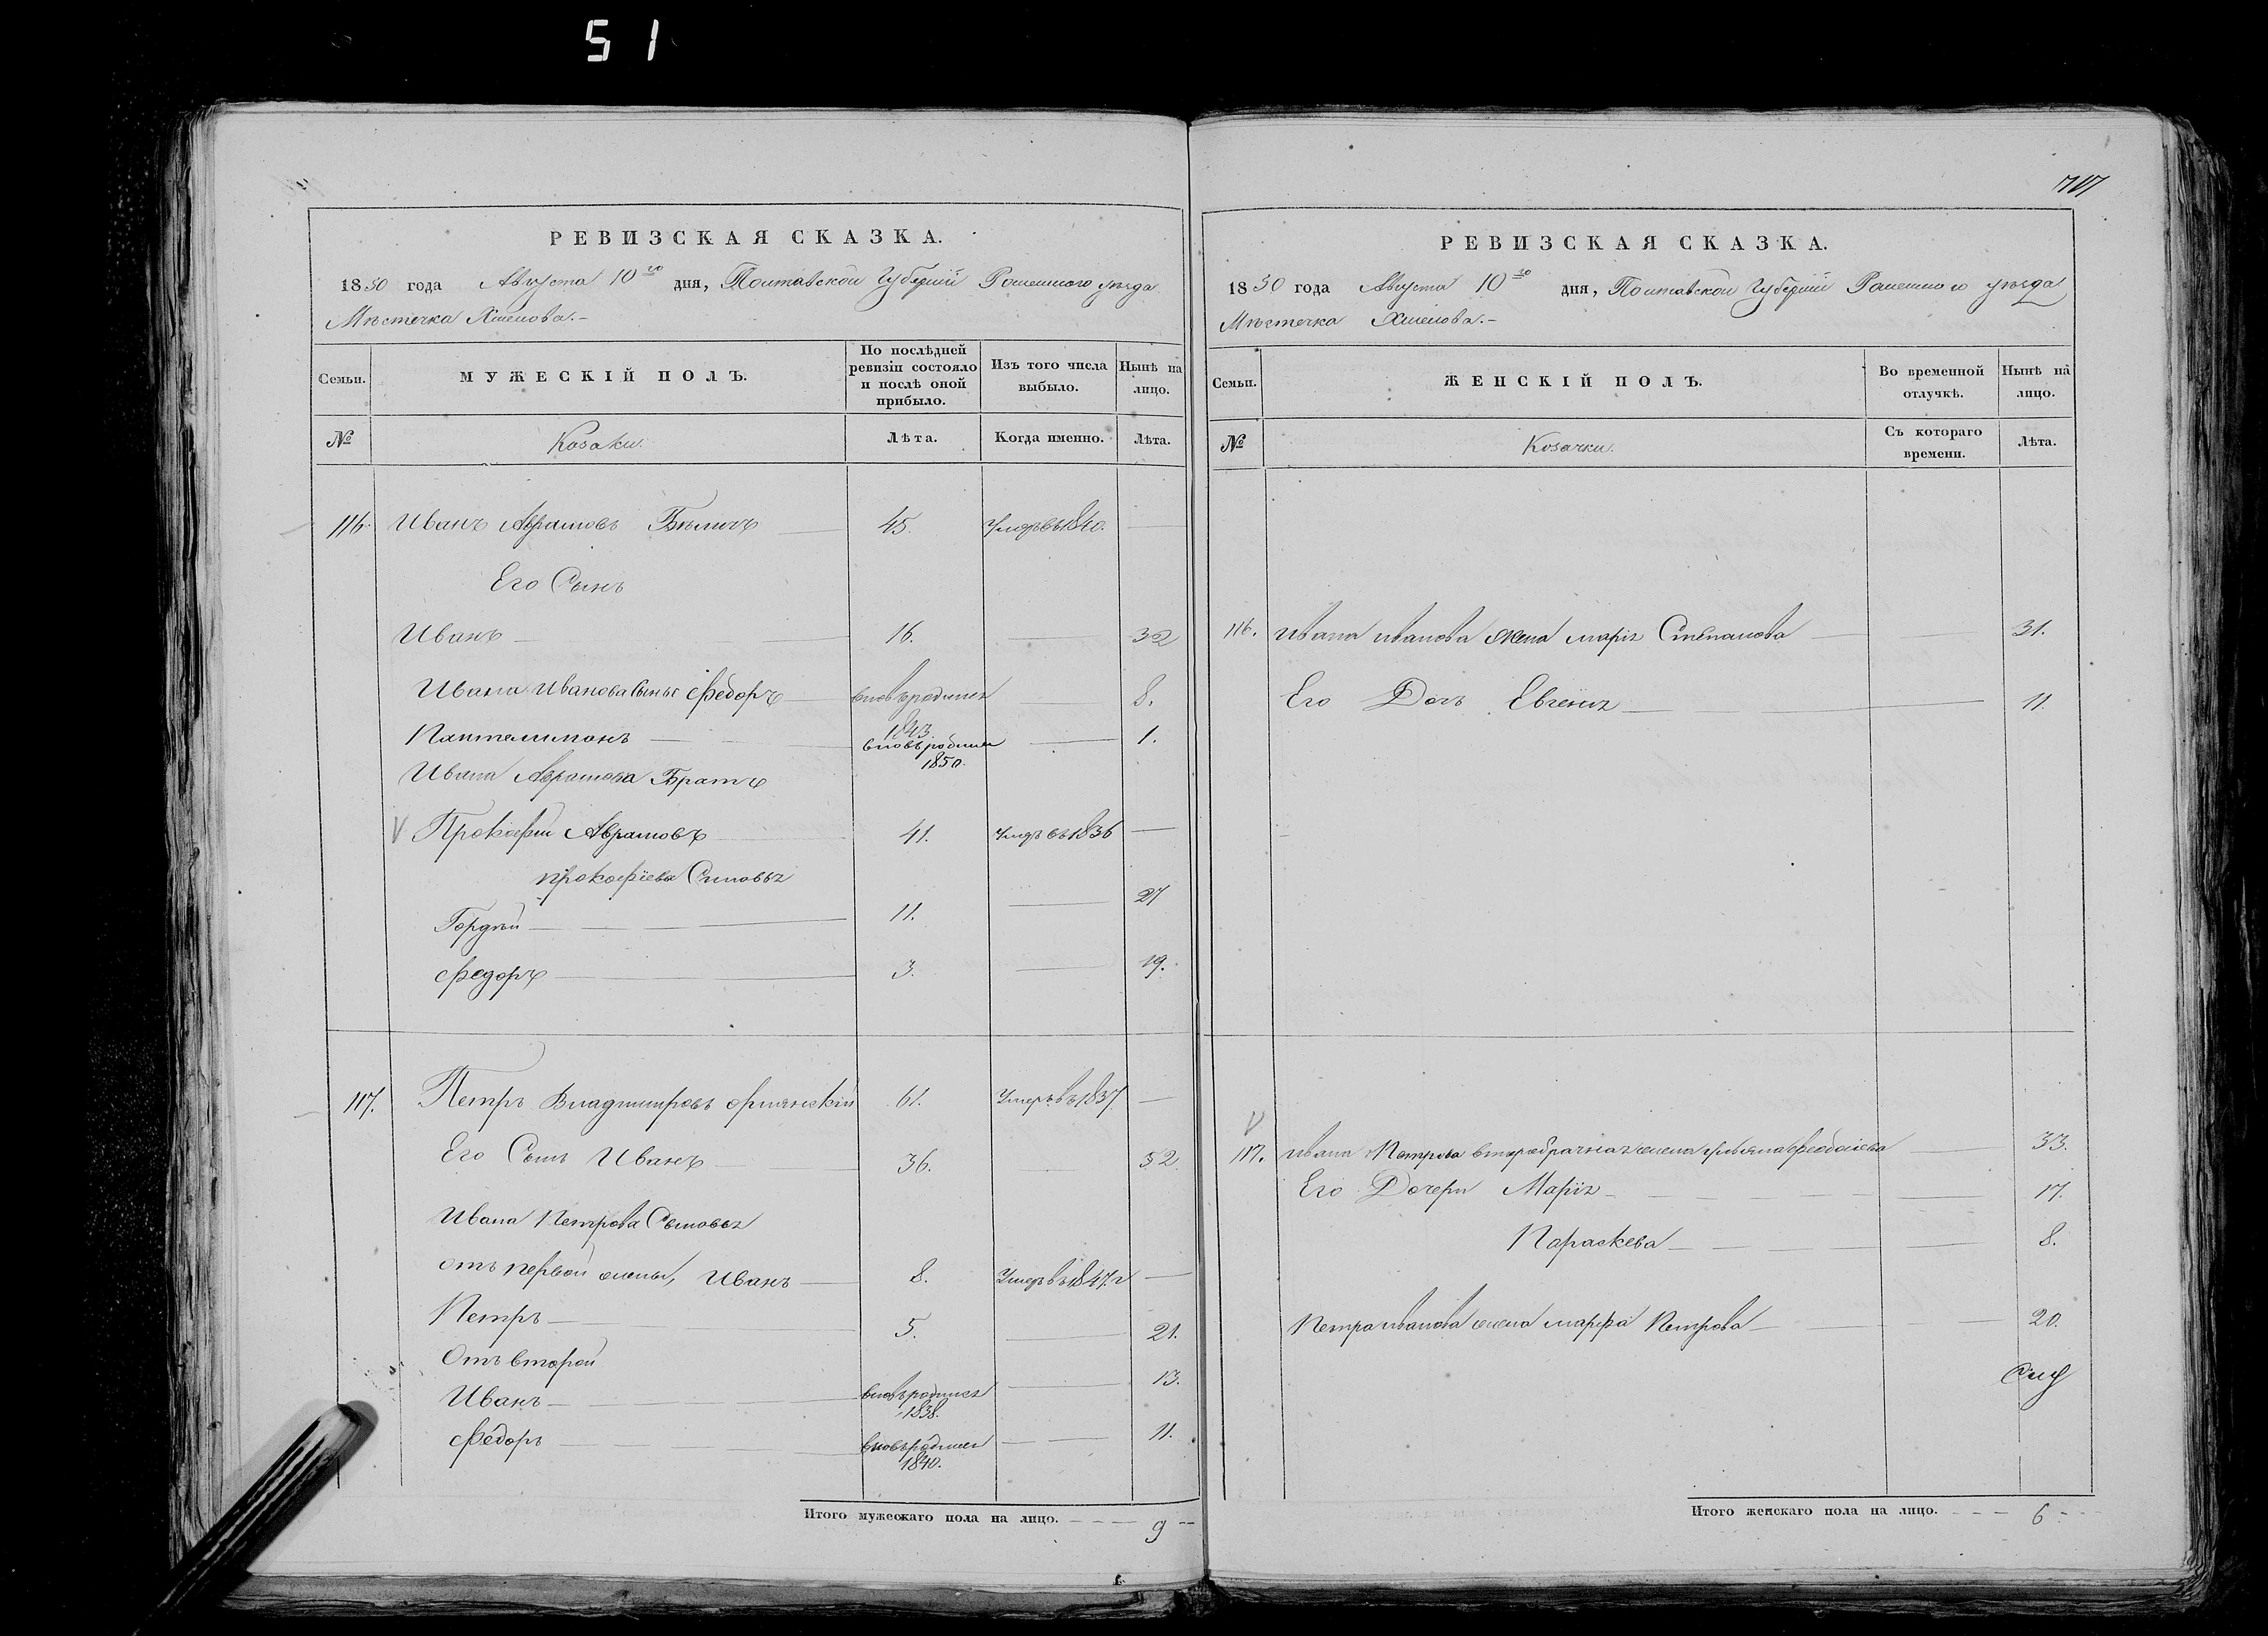 51
РЕВИЗСКАЯ СКАЗКА.
1850 года Августа 10го дня, Полтавской Губерніи Роменского уезда
Мѣстечка Хмелова.-
Семьи.
МУЖЕСКІЙ ПОЛЪ.
По послѣдней ревизіи состояло и послѣ оной прибыло.
Изъ того числа выбыло.
Нынѣ на лицо.
№
Козаки.
Лѣта.
Когда именно.
Лѣта.
116. Иванъ Аврамовъ Бѣличъ 45. Умеръ въ 1840.
Его Сынъ
Иванъ 16. 32
Ивана Иванова сынъ Федоръ вновь родился 1843. 8.
Пантелимонъ вновь родился 1850. 1.
Ивана Аврамова Братъ
V Прокофій Аврамовъ 41. Умеръ въ 1836
Прокофіева Сыновья
Гордѣй 11. 27
Федоръ 3. 19.
117. Петръ Владимировъ 61. Умеръ въ 1837
Его Сынъ Иванъ 36. 52.
Ивана Петрова Сыновья
отъ первой жены, Иванъ 8. Умеръ въ 1847. г
Петръ 5. 21.
Отъ второй
Иванъ вновь родился 1838. 13.
Федоръ вновь родился 1840. 11.
Итого мужескаго пола на лицо. 9
РЕВИЗСКАЯ СКАЗКА.
1850 года Августа 10го дня, Полтавской Губерніи Роменского уезда
Мѣстечка Хмелова.-
Семьи.
ЖЕНСКІЙ ПОЛЪ.
Во временной отлучкѣ.
Нынѣ на лицо.
№
Козачки.
Съ котораго времени.
Лѣта.
116. Ивана Иванова жена Марія Степанова 31.
Его Дочь Евгенія 11.
V
117. Ивана Петрова второбрачная жена 33.
Его Дочери Марія 17.
Параскева 8.
Петра Иванова жена Марфа Петрова 20.
Итого женскаго пола на лицо. 6